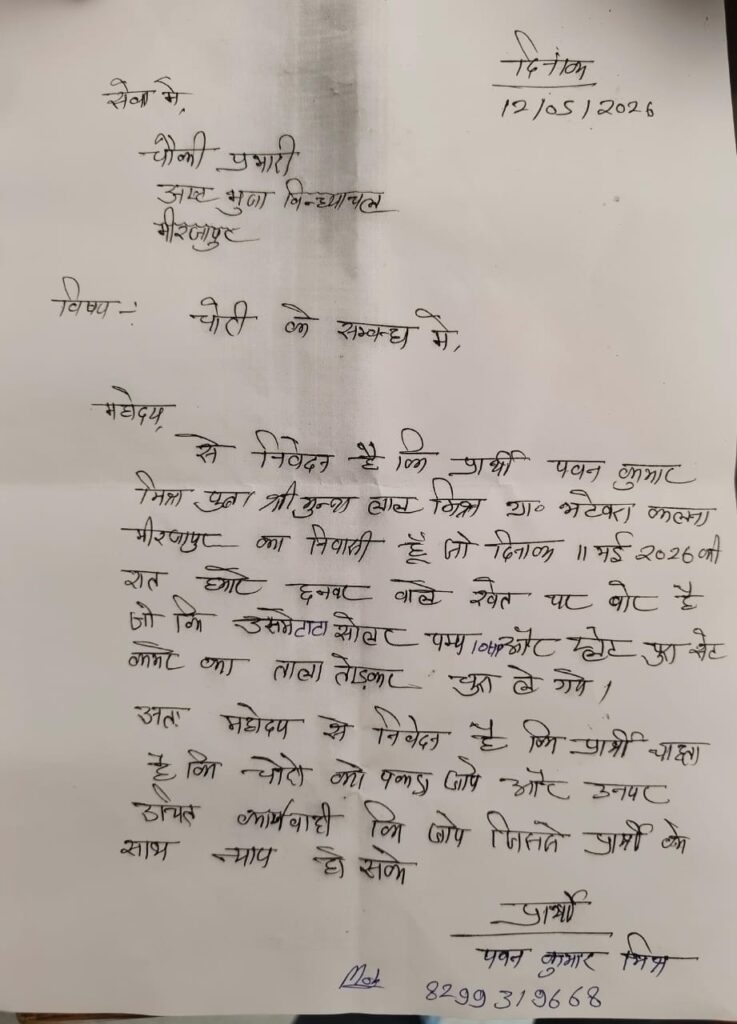 दिनांक
12/05/2026
सेवा मे,
चौकी प्रभारी
अष्ट भुजा विन्ध्याचल
मीरजापुर
विषय -: चोरी के सम्बन्ध मे,
महोदय,
से निवेदन है कि प्रार्थी पवन कुमार
मिश्रा पुत्र श्री मुन्ना लाल मिश्रा ग्रा०
मीरजापुर का निवासी हूँ जो दिनांक 11 मई 2026 की
रात वाले खेत पर बोर है
जो कि उसमे टाटा सोलर पम्प 10HP और प्लेट पुरा सेट
कमरे का ताला तोड़कर चुरा ले गये।
अतः महोदय से निवेदन है कि प्रार्थी चाहता
है कि चोरो को पकड़ा जाये और उनपर
उचित कार्यवाही कि जाये जिससे प्रार्थी के
साथ न्याय हो सके
प्रार्थी
पवन कुमार मिश्रा
Mob 8299319668